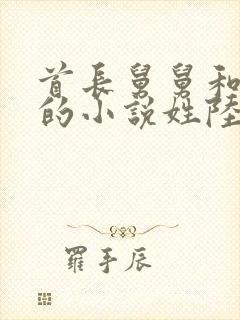 首長舅舅和
的小說姓陸
羅手辰